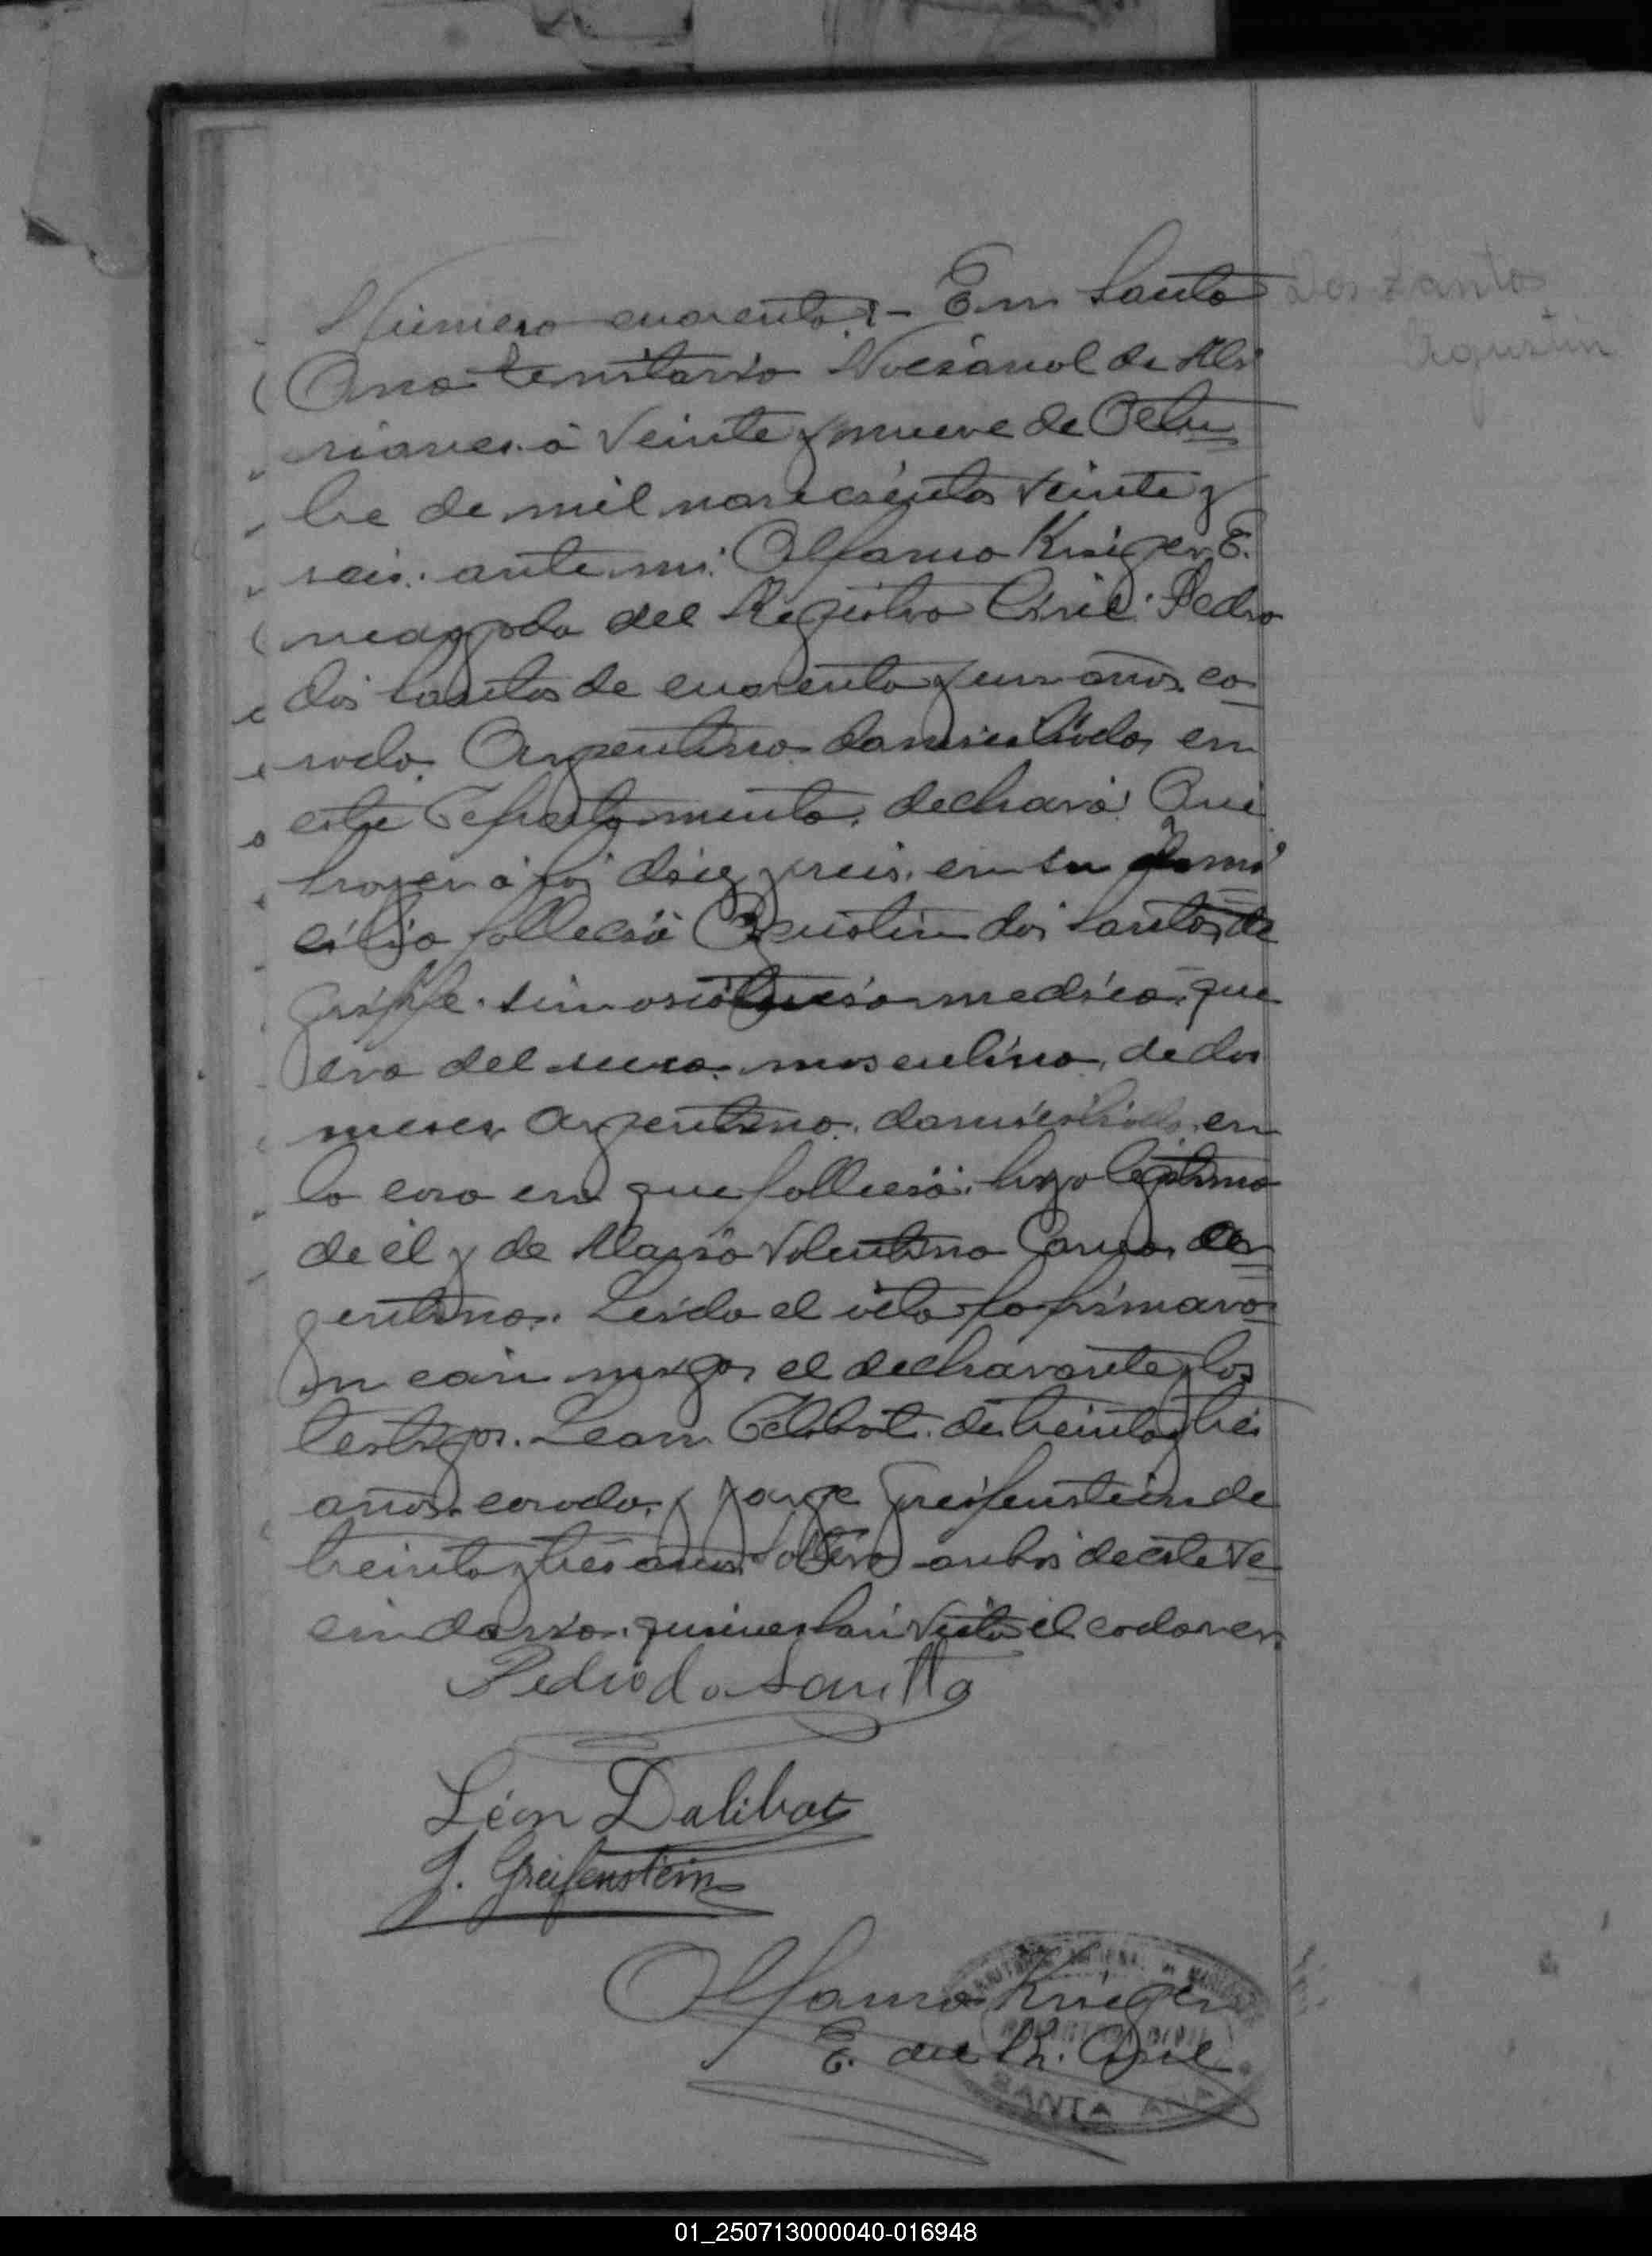 Número cuarenta:- En Santa
Ana territorio Nacional de Mi
siones. á veinte y nueve de Octu
bre de mil novecientos veinte y
seis. ante mi: Alfonso Krieger, E.
ncargado del Registro Civil. Pedro
dos Santos de cuarenta y un años, ca
sado. Argentino. domiciliado, en
este Departamento, declaró: Que
á las diez y seis, en su domi
cilio falleció Agustin dos Santos de
grippe. sin asistencia medica, que
era del sexo. masculino, de dos
meses, Argentino. domiciliado, en
la casa en que falleció: hijo legitimo
de él y de Maria Valentina ar
gentina. Leida el acta la firmaro
n con migo, el declarante y los
testigos. Leon Dalibot. de treinta y tres
años. casado. y Jorge Greifenstein de
treinta y tres años. Soltero ambos de este ve
cindario. quienes han visto el cadaver.
Pedro do Santto
Léon Dalibot
J. Greifenstein
Alfonso Krieger
E. del R. Civil
TERRITORIO NACIONAL DE MISIONES
SANTA ANA
Dos Santos
Agustin
01_250713000040-016948